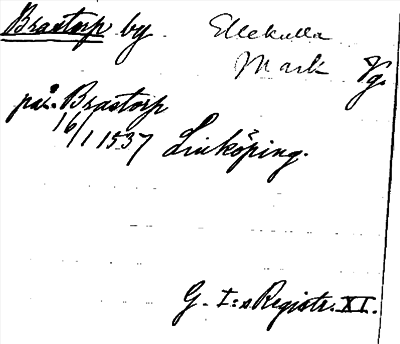 Brastorp by. Ellekulla
Mark Vg.
på. Brastorp
16/1 1537 Linköping.
G. I:s Registr. XI.